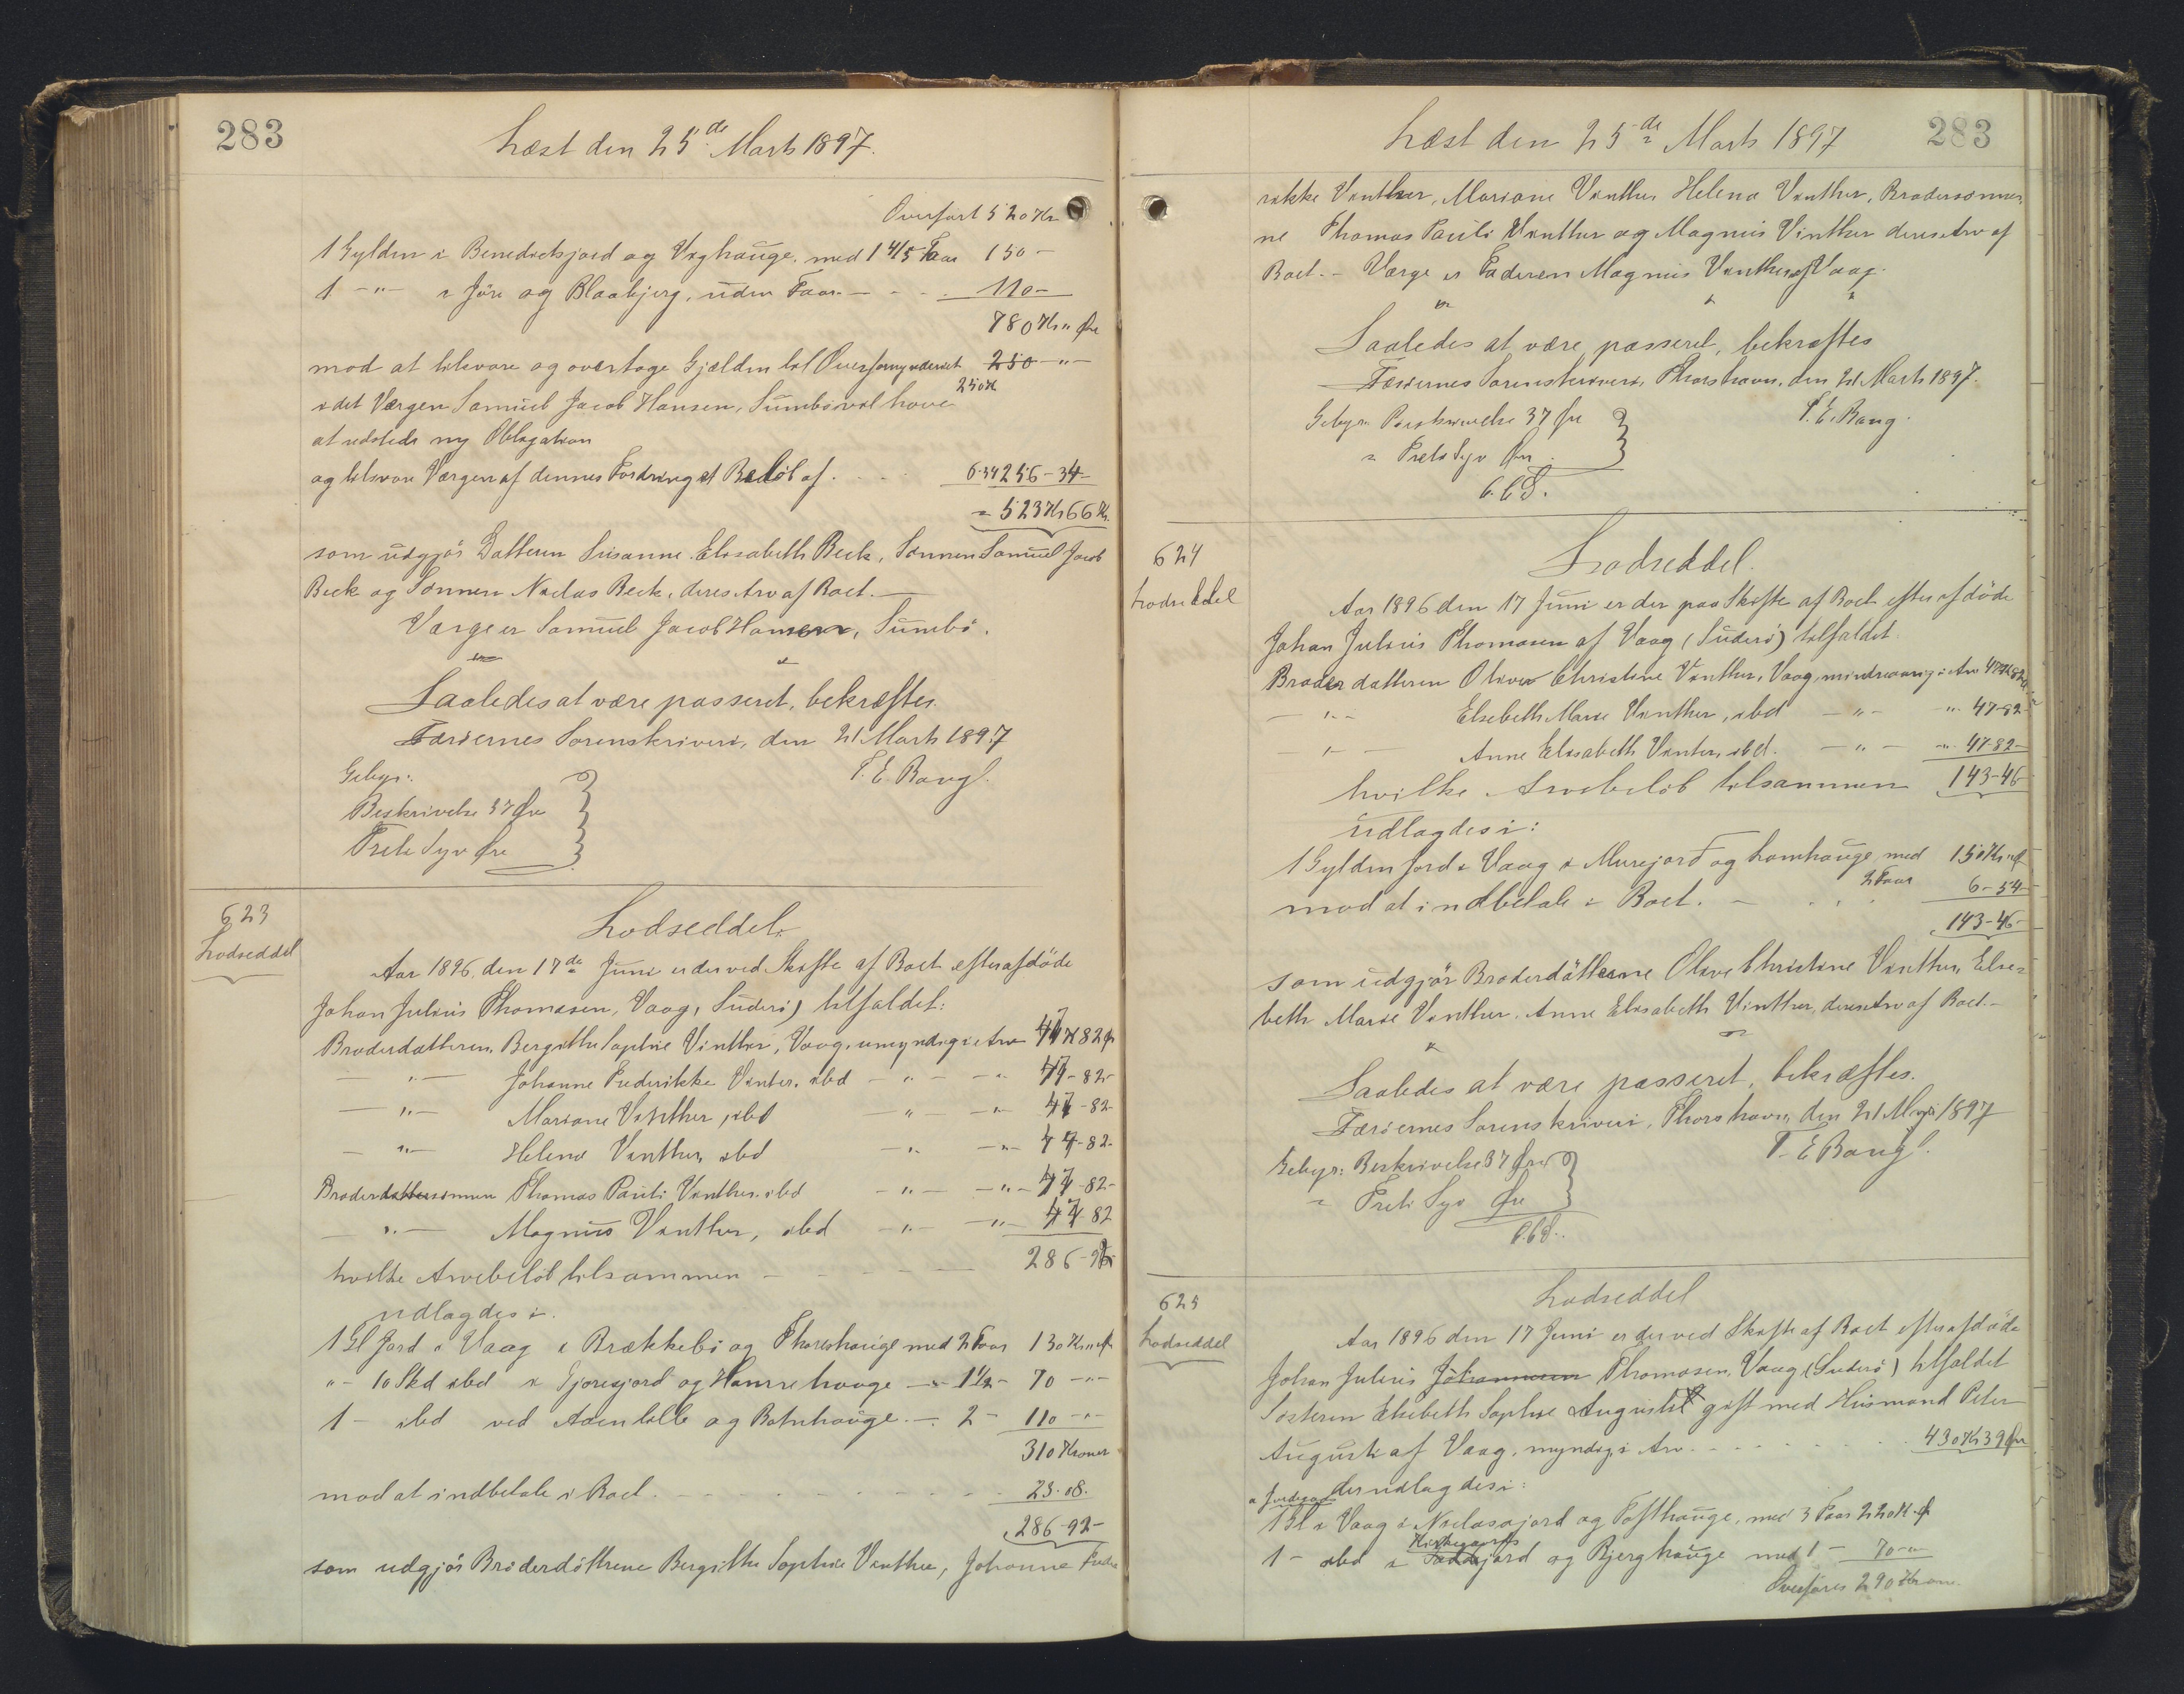 283
Læst den 25de Marts 1897.
Overført 520 Kr
1 Gylden i Benedictsjord og Væghauge, med 1 4/5 Faar 150 -
1 -"- i Jöre og Blaabjerg, uden Faar - - - 110 -
780 Kr " Øre
mod at tilsvare og overtage Gjælden til Overformynderiet 250 - " -
idet Værgen Samuel Jacob Hansen, Sumbö vil have 250 Kr
at udstede ny Obligation
og tilsvare Værgen af dennes Fordring et Beløb af . . . 6-34 256-34-
= 523 Kr 66 Øre
som udgjör Datteren Susanne Elisabeth Beck, Sønnen Samuel Jacob
Beck og Sønnen Niclas Beck, deres Arv af Boet.
Værge er Samuel Jacob Hansen, Sumbö.
Saaledes at være passeret, bekræftes.
Færöernes Sorenskriveri, den 21 Marts 1897
Gebyr: T. E. Bang
Beskrivelse 37 Øre
Treti Syv Øre
623
Lodseddel
Lodseddel.
Aar 1896, den 17de Juni er der ved Skifte af Boet efter afdöde
Johan Julius Thomasen, Vaag, Suderö) tilfaldet:
Broderdatteren Bergithe Sophie Vinther, Vaag, umyndig i Arv 47 K 82 Ø
- " - Johanne Frederikke Vinter, ibd - " - - " 47-82-
- " - Mariane Vinther, ibd - " - " - 47-82-
- " - Helena Vinther, ibd - " - " - 47-82-
Brodersönnen Thomas Pauli Vinther ibd - " - - " - 47-82-
- " - Magnus Vinther, ibd - " - - " - 47-82
hvilke Arvebelöb tilsammen - - - - 286-92
udlagdes i.
1 Gl Jord i Vaag i Brækkebö og Thoreshauge med 2 Faar 130 Kr " Ø
" - 10 Skd ibd i Gjoresjord og Hamrehauge - " - 1 1/2 - 70 - " -
1 - ibd ved Aaentille og Botnhauge. - " 2 - 110 - " -
310 Kroner
mod at indbetale i Boet. - - - - 23-08.
286-92-
som udgjör Broderdöttrene Bergithe Sophie Vinther, Johanne Frede
283
Læst den 25de Marts 1897
rikke Vinther, Mariane Vinther Helena Vinther, Brodersönner,
ne Thomas Pauli Vinther og Magnus Vinther deres Arv af
Boet. - Værge er Faderen Magnus Vinther af Vaag.
Saaledes at være passeret, bekræftes
Færöernes Sorenskriveri, Thorshavn, den 21 Marts 1897.
Gebyr. Beskrivelse 37 Øre T. E. Bang.
= Treti Syv Øre
624
Lodseddel
Lodseddel.
Aar 1896 den 17 Juni er der paa Skifte af Boet efter afdöde
Johan Julius Thomasen af Vaag (Suderö) tilfaldet
Broderdatteren Olive Christine Vinther, Vaag, mindreaarig i Arv 47 K 82 Ø
- " - Elsebeth Marie Vinther, ibd - " - " 47-82-
- " - Anne Elisabeth Vinter, ibd. - " - " 47-82-
hvilke Arvebelöb tilsammen 143-46
udlagdes i:
1 Gylden Jord i Vaag i Murejord og Lomhauge med 150 Kr " Ø
2 Faar
mod at indbetale i Boet. - . . . 6-54-
143-46-
som udgjör Broderdöttrene Olive Christine Vinther, Else=
beth Marie Vinther, Anne Elisabeth Vinther, deres Arv af Boet. -
Saaledes at være passeret, bekræftes.
Færöernes Sorenskriveri, Thorshavn, den 21 1897
Gebyr: Beskrivelse 37 Øre T. E. Bang
= Treti Syv Øre
625
Lodseddel
Lodseddel
Aar 1896 den 17 Juni er der ved Skifte af Boet efter afdöde
Johan Julius Johannesen Thomasen, Vaag (Suderö) tilfaldet
Søsteren Elsebeth Sophie Augusti gift med Huusmand Peter
Augusti af Vaag, myndig, i Arv . . . . 430 Kr 39 Øre
der udlagdes i:
1 Gl i Vaag i Niclasajord og Tofthauge, med 3 Faar 220 K " Ø
1 - ibd i Kirkegaards jord og Bjerghauge med 1 - 70 - " -
Overføres 290 Kroner.